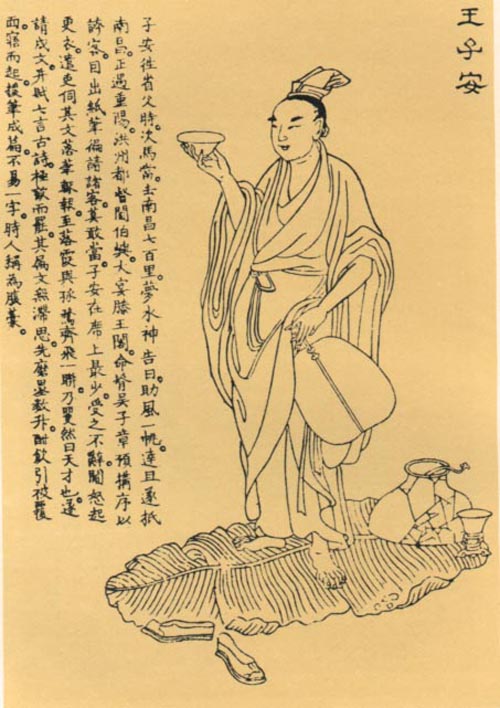 王子安
子安徃省父時。次馬當。去南昌七百里。夢水神告曰助風一帆。達旦遂抵
南昌。正遇重陽。洪州都督閻伯嶼。大宴滕王閣。命壻吳子章預搆序以
誇客。因出紙筆徧請諸客。莫敢當。子安在席上最少。受之不辭。閻怒起
更衣。遣吏伺其文落筆輙報。至落霞與孤鶩齊飛一聯。乃矍然曰天才也。遂
請成文。并賦七言古詩。極歡而罷。其屬文無滯思。先磨墨數升。酣飲引被覆
面。寤而起。援筆成篇。不易一字。時人稱為腹藁。